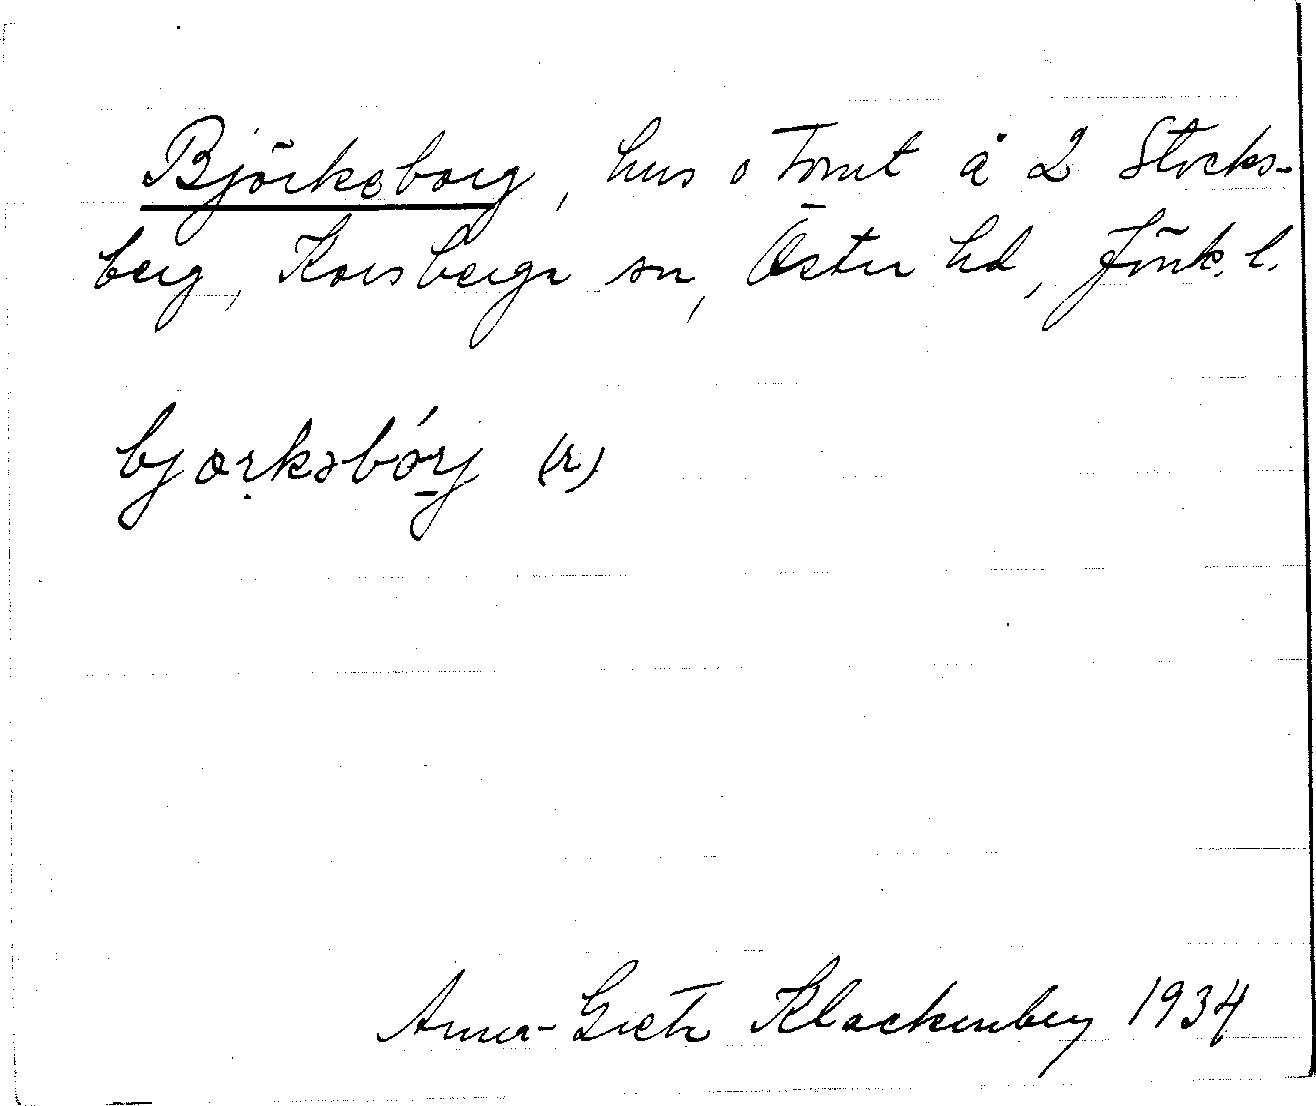 Björkeborg, hus o Tomt å 2 Stocks-
berg, Korsberga sn, Östra hd, Jönk. l.
bjœrkəbórj (r)
Anna-Greta Klackenberg 1934